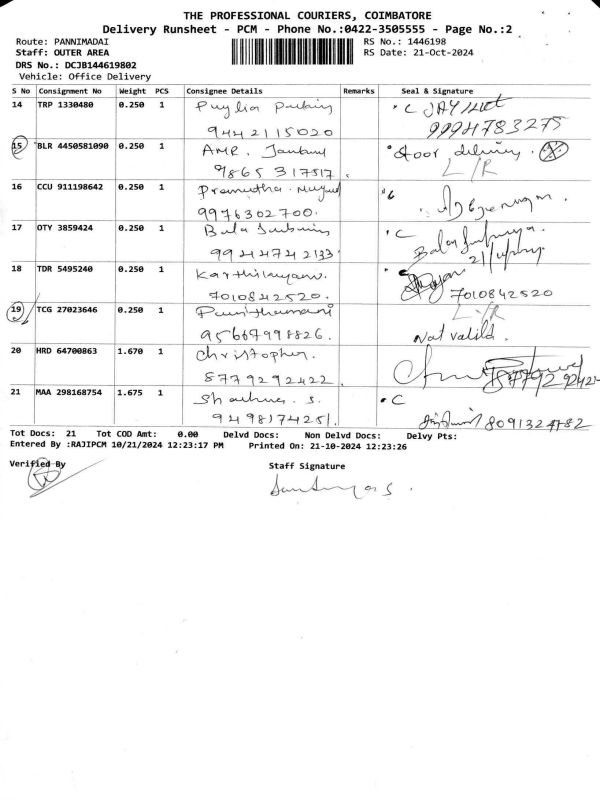 THE PROFESSIONAL COURIERS, COIMBATORE
Delivery Runsheet - PCM - Phone No.:0422-3505555 - Page No.:2
Route: PANNIMADAI RS No.: 1446198
Staff: OUTER AREA RS Date: 21-Oct-2024
DRS No.: DCJB144619802
Vehicle: Office Delivery
S No Consignment No Weight PCS Consignee Details Remarks Seal & Signature
14 TRP 1330480 0.250 1
9442115020 9994783275
15 BLR 4450581090 0.250 1 AMR. door delivery.
9865317517 L/R
16 CCU 911198642 0.250 1
9976302700.
17 OTY 3859424 0.250 1 Bala C
9944742133
18 TDR 5495240 0.250 1
7010842520. 7010842520
19 TCG 27023646 0.250 1 L/R
95667998826. Not valid.
20 HRD 64700863 1.670 1 Christopher.
8779292422
21 MAA 298168754 1.675 1 C
9498174251. 8091324782
Tot Docs: 21 Tot COD Amt: 0.00 Delvd Docs: Non Delvd Docs: Delvy Pts:
Entered By :RAJIPCM 10/21/2024 12:23:17 PM Printed On: 21-10-2024 12:23:26
Verified By Staff Signature